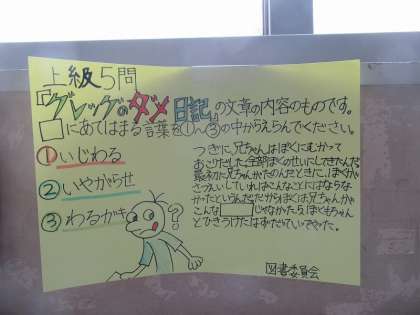 上級5問
『グレッグのダメ日記』の文章の内容のものです。
□にあてはまる言葉を①~③の中からえらんでください。
①いじわる
②いやがらせ
③わるガキ
つぎに、兄ちゃんはぼくにむかって
おこりだした。全部ぼくのせいにしてきたんだ
最初に兄ちゃんがたのんだときに、ぼくが
さっ
していればこんなことにはならな
かったというんだ。だからぼくは、兄ちゃんが
こんな□じゃなかったら、ぼくもちゃん
とひきうけたはずだっていってやった。
?
図書委員会